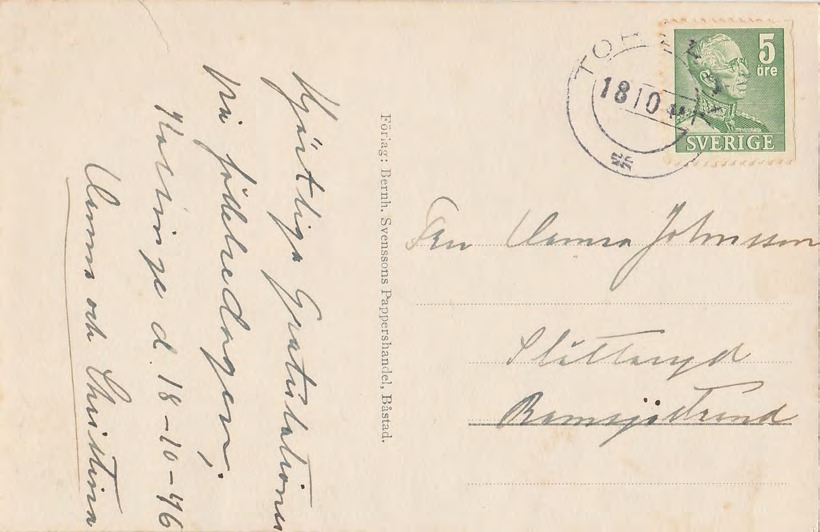 Hjärtliga Gratulationer
på födelsedagen,
d. 18-10-46
och Christina
Förlag: Bernh. Svenssons Pappershandel, Båstad.
1810
5
öre
SVERIGE
Fru Johnsson
Slätteryd